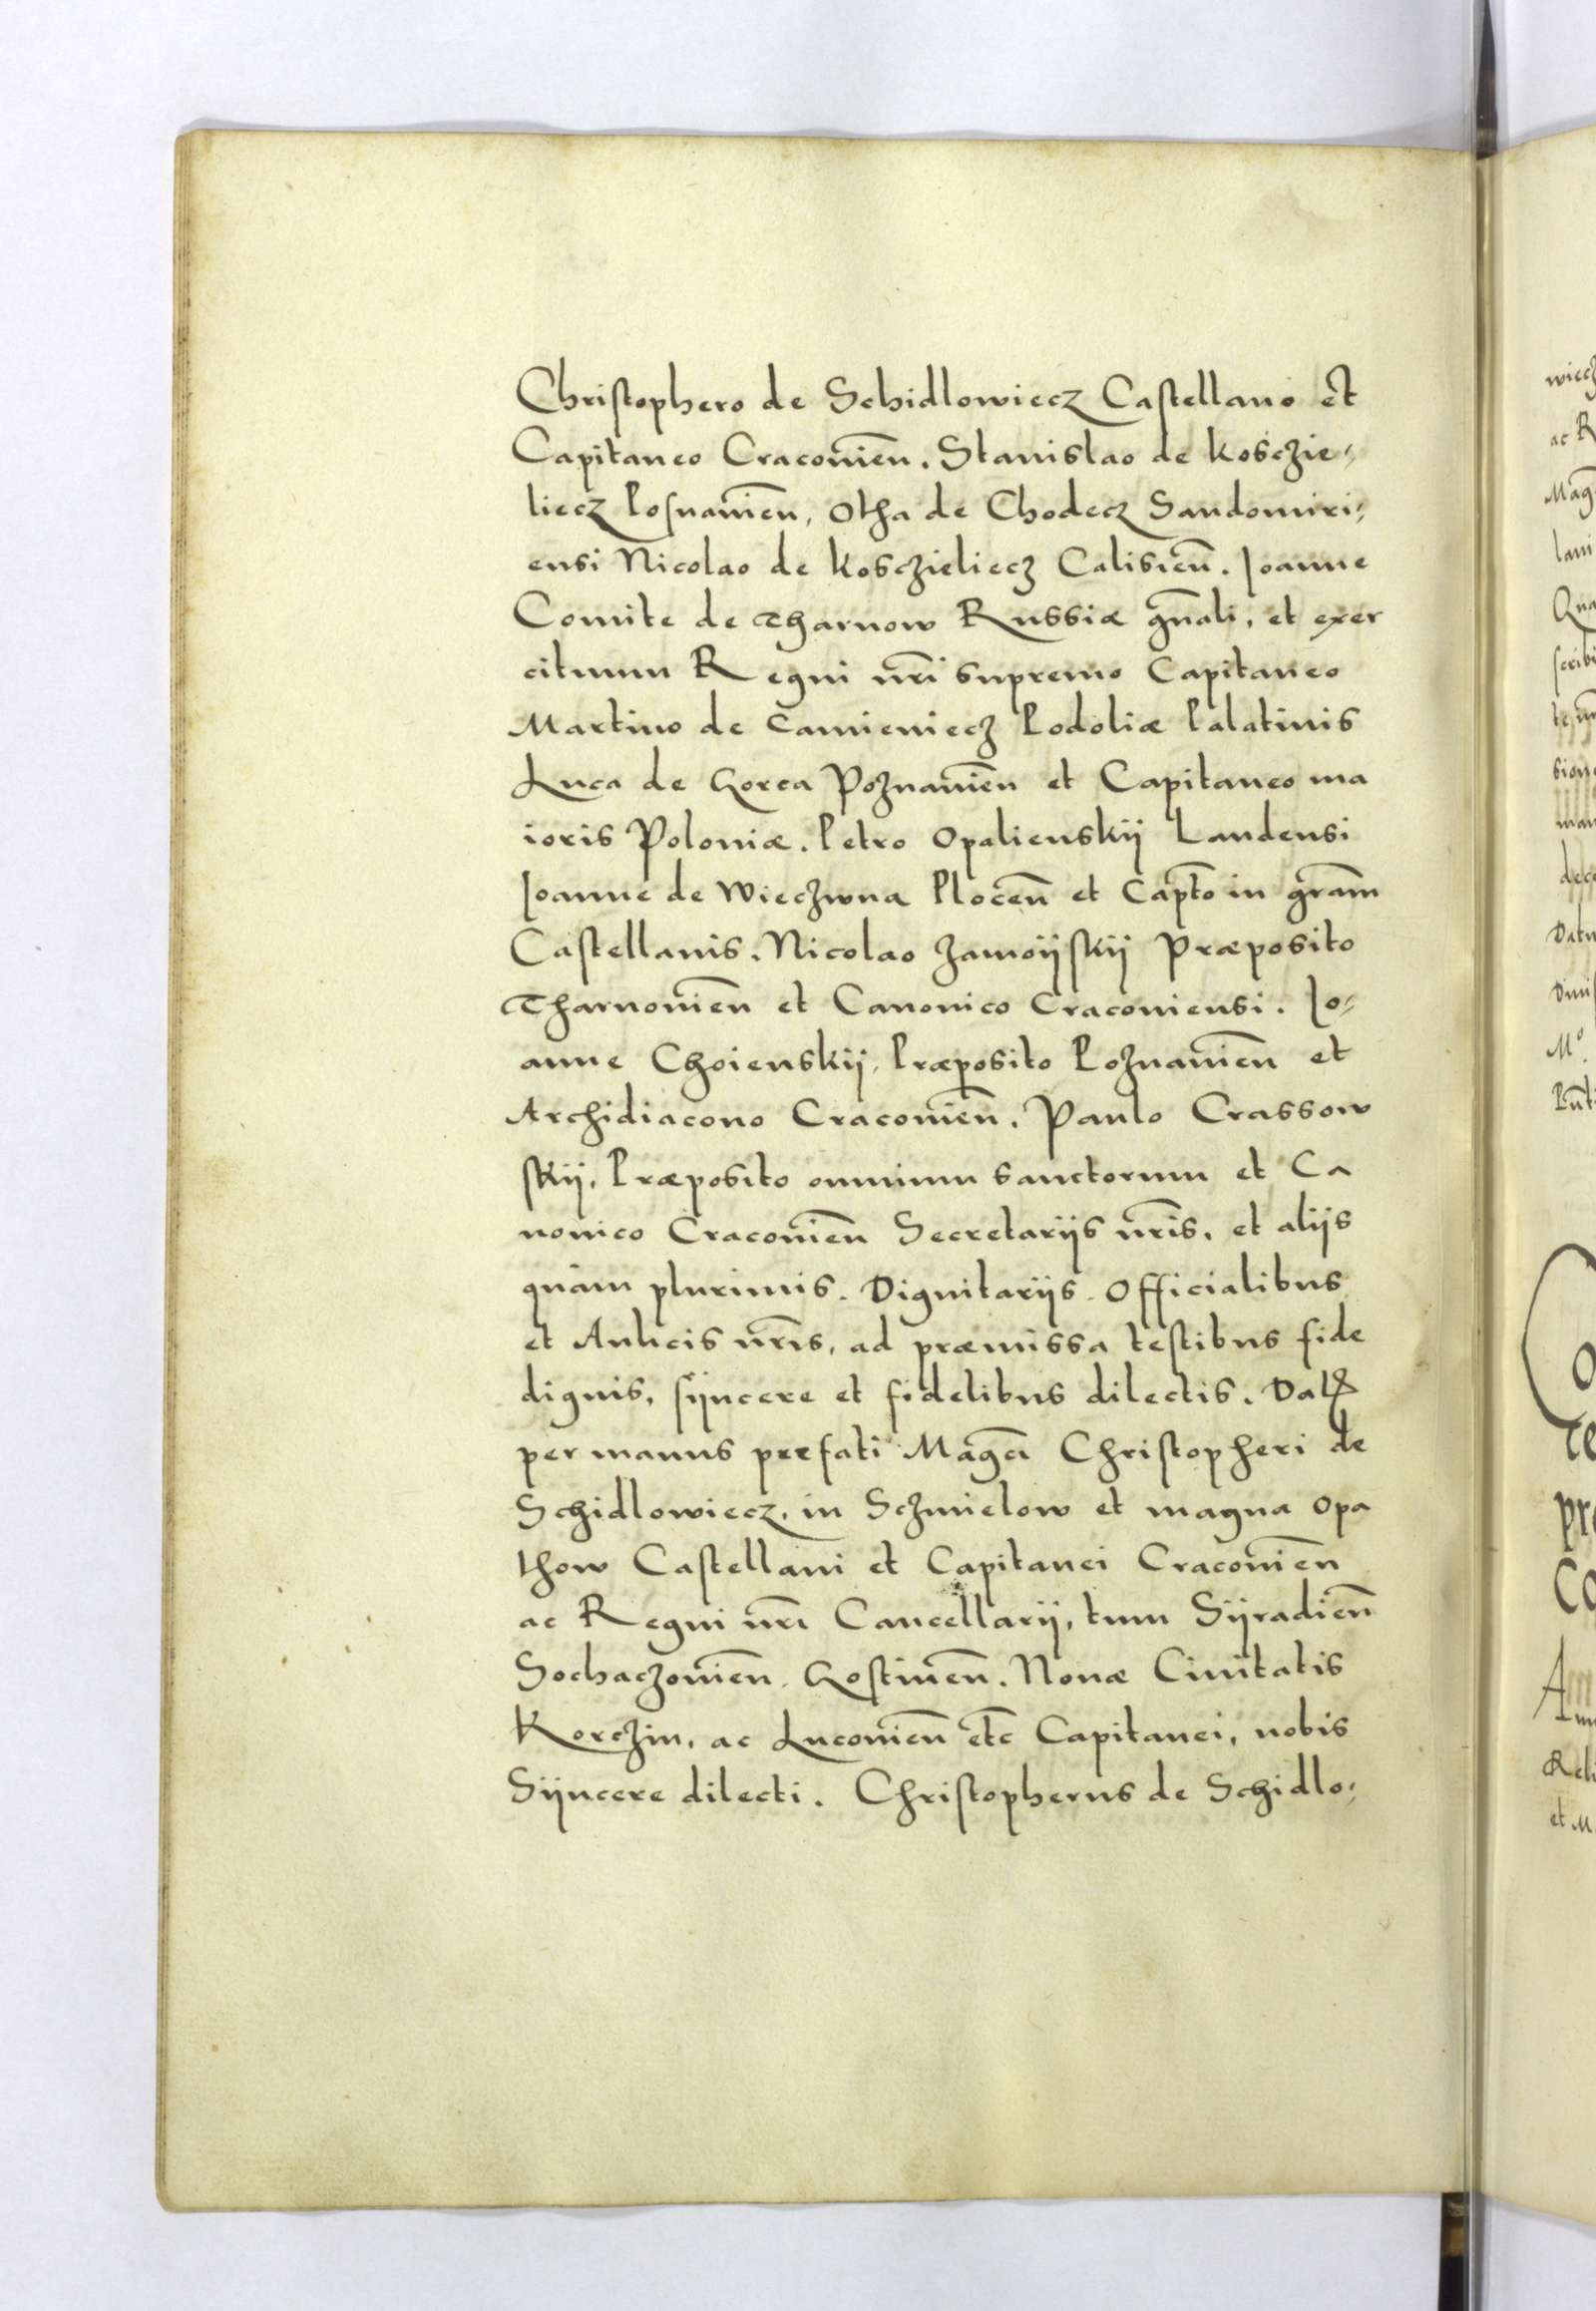 Christophero de Schidlowiecz Castellano et
Capitaneo Cracovien̄. Stanislao de Kosczie⸗
liecz Posnanien̄, Otha de Chodecz Sandomiri⸗
ensi Nicolao de Kosczieliecz Calisien̄. Ioanne
Comite de Tharnow Russiæ gn̄ali, et exer
cituum Regni nr̄i supremo Capitaneo
Martino de Camieniecz Podoliæ Palatinis
Luca de Gorca Poznanien̄ et Capitaneo ma
ioris Poloniæ. Petro Opalienskij Landensi
Ioanne de Wieczwna Plocen̄ et Capt̄o in gr̄am
Castellanis. Nicolao Zamoijskij Præposito
Tharnovien̄ et Canonico Cracoviensi. Io⸗
anne Choienskij, Præposito Poznanien̄ et
Archidiacono Cracovien̄. Paulo Crassow
skij, Præposito omnium sanctorum et Ca
nonico Cracovien̄ Secretarijs nr̄is, et alijs
quàm plurimis. Dignitarijs. Officialibus
et Aulicis nr̄is, ad præmissa testibus fide
dignis, sijncere et fidelibus dilectis. Datꝝ
per manus prefati Maḡci Christopheri de
Schidlowiecz, in Sczmielow et magna Opa
thow Castellani et Capitanei Cracovien̄
ac Regni nr̄i Cancellarij, tum Sijradien̄
Sochaczovien̄. Gostinen̄. Novæ Civitatis
Korczin, ac Lucovien̄ et̄c Capitanei, nobis
Sijncere dilecti. Christopherus de Schidlo⸗